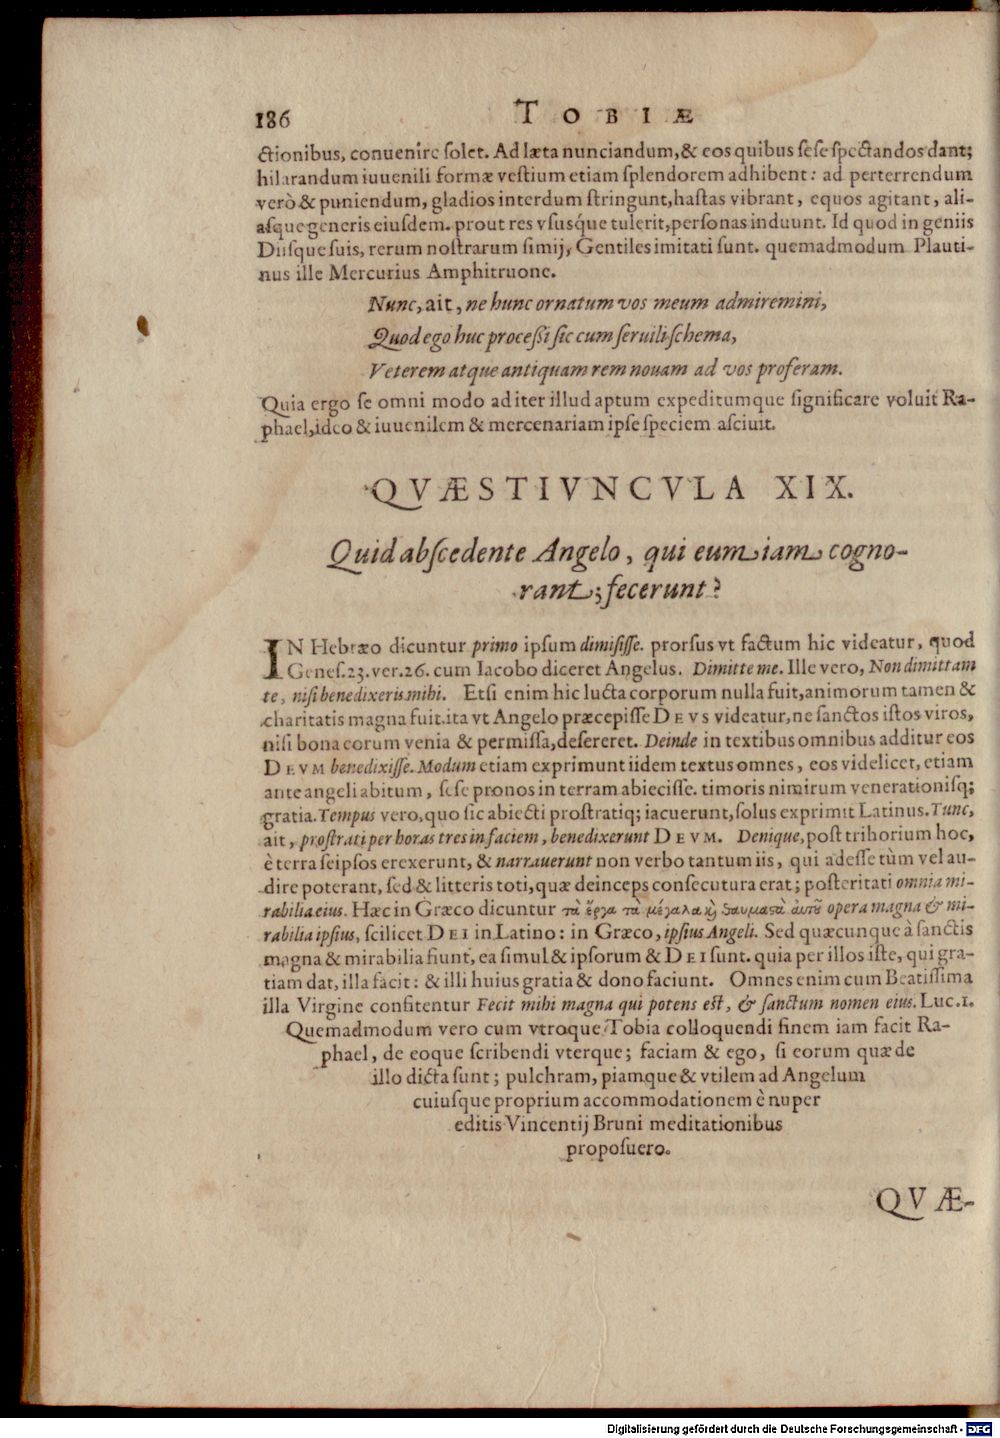 186 TOBIÆ
ctionibus, conuenire ſolet. Ad læta nunciandum, & eos quibus ſeſe ſpectandos dant;
hilarandum iuuenili formæ veſtium etiam ſplendorem adhibent: ad perterrendum
verò & puniendum, gladios interdum ſtringunt, haſtas vibrant, equos agitant, ali-
aſque generis eiuſdem. prout res vſusq́ue tulerit, perſonas induunt. Id quod in geniis
Diiſque ſuis, rerum noſtrarum ſimij, Gentiles imitati ſunt. quemadmodum Plauti-
nus ille Mercurius Amphitruone.
Nunc, ait, ne hunc ornatum vos meum admiremini,
Quod ego huc proceſſi ſic cum ſeruili ſchema,
Veterem atque antiquam rem nouam ad vos proferam.
Quia ergo ſe omni modo ad iter illud aptum expeditumque ſignificare voluit Ra-
phael, ideo & iuuenilem & mercenariam ipſe ſpeciem aſciuit.
QVÆSTIVNCVLA XIX.
Quid abſcedente Angelo, qui eum iam cogno-
rant; fecerunt?
IN Hebræo dicuntur primo ipſum dimiſiſſe. prorſus vt factum hic videatur, quod
Geneſ. 23. ver. 26. cum Iacobo diceret Angelus. Dimitte me. Ille vero, Non dimittam
te, niſi benedixeris mihi. Etſi enim hic lucta corporum nulla fuit, animorum tamen &
charitatis magna fuit. ita vt Angelo præcepiſſe DEVS videatur, ne ſanctos iſtos viros,
niſi bona eorum venia & permiſſa, deſereret. Deinde in textibus omnibus additur eos
DEVM benedixiſſe. Modum etiam exprimunt iidem textus omnes, eos videlicet, etiam
ante angeli abitum, ſeſe pronos in terram abieciſſe. timoris nimirum venerationiſq;
gratia. Tempus vero, quo ſic abiecti proſtratiq; iacuerunt, ſolus exprimit Latinus. Tunc,
ait, proſtrati per horas tres in faciem, benedixerunt DEVM. Denique, poſt trihorium hoc,
è terra ſeipſos erexerunt, & narrauerunt non verbo tantum iis, qui adeſſe tùm vel au-
dire poterant, ſed & litteris toti, quæ deinceps conſecutura erat; poſteritati omnia mi-
rabilia eius. Hæc in Græco dicuntur τὰ ἔργα τὰ μέγαλα ϗ θαυμαστὰ ἀυτȣ͂ opera magna & mi-
rabilia ipſius, ſcilicet DEI in Latino: in Græco, ipſius Angeli. Sed quæcunque à ſanctis
magna & mirabilia fiunt, ea ſimul & ipſorum & DEI ſunt. quia per illos iſte, qui gra-
tiam dat, illa facit: & illi huius gratia & dono faciunt. Omnes enim cum Beatiſſima
illa Virgine confitentur Fecit mihi magna qui potens eſt, & ſanctum nomen eius. Luc. 1.
Quemadmodum vero cum vtroque Tobia colloquendi finem iam facit Ra-
phael, de eoque ſcribendi vterque; faciam & ego, ſi eorum quæ de
illo dicta ſunt; pulchram, piamque & vtilem ad Angelum
cuiuſque proprium accommodationem è nuper
editis Vincentij Bruni meditationibus
propoſuero.
QVÆ-
Digitalisierung gefördert durch die Deutsche Forschungsgemeinschaft - DFG